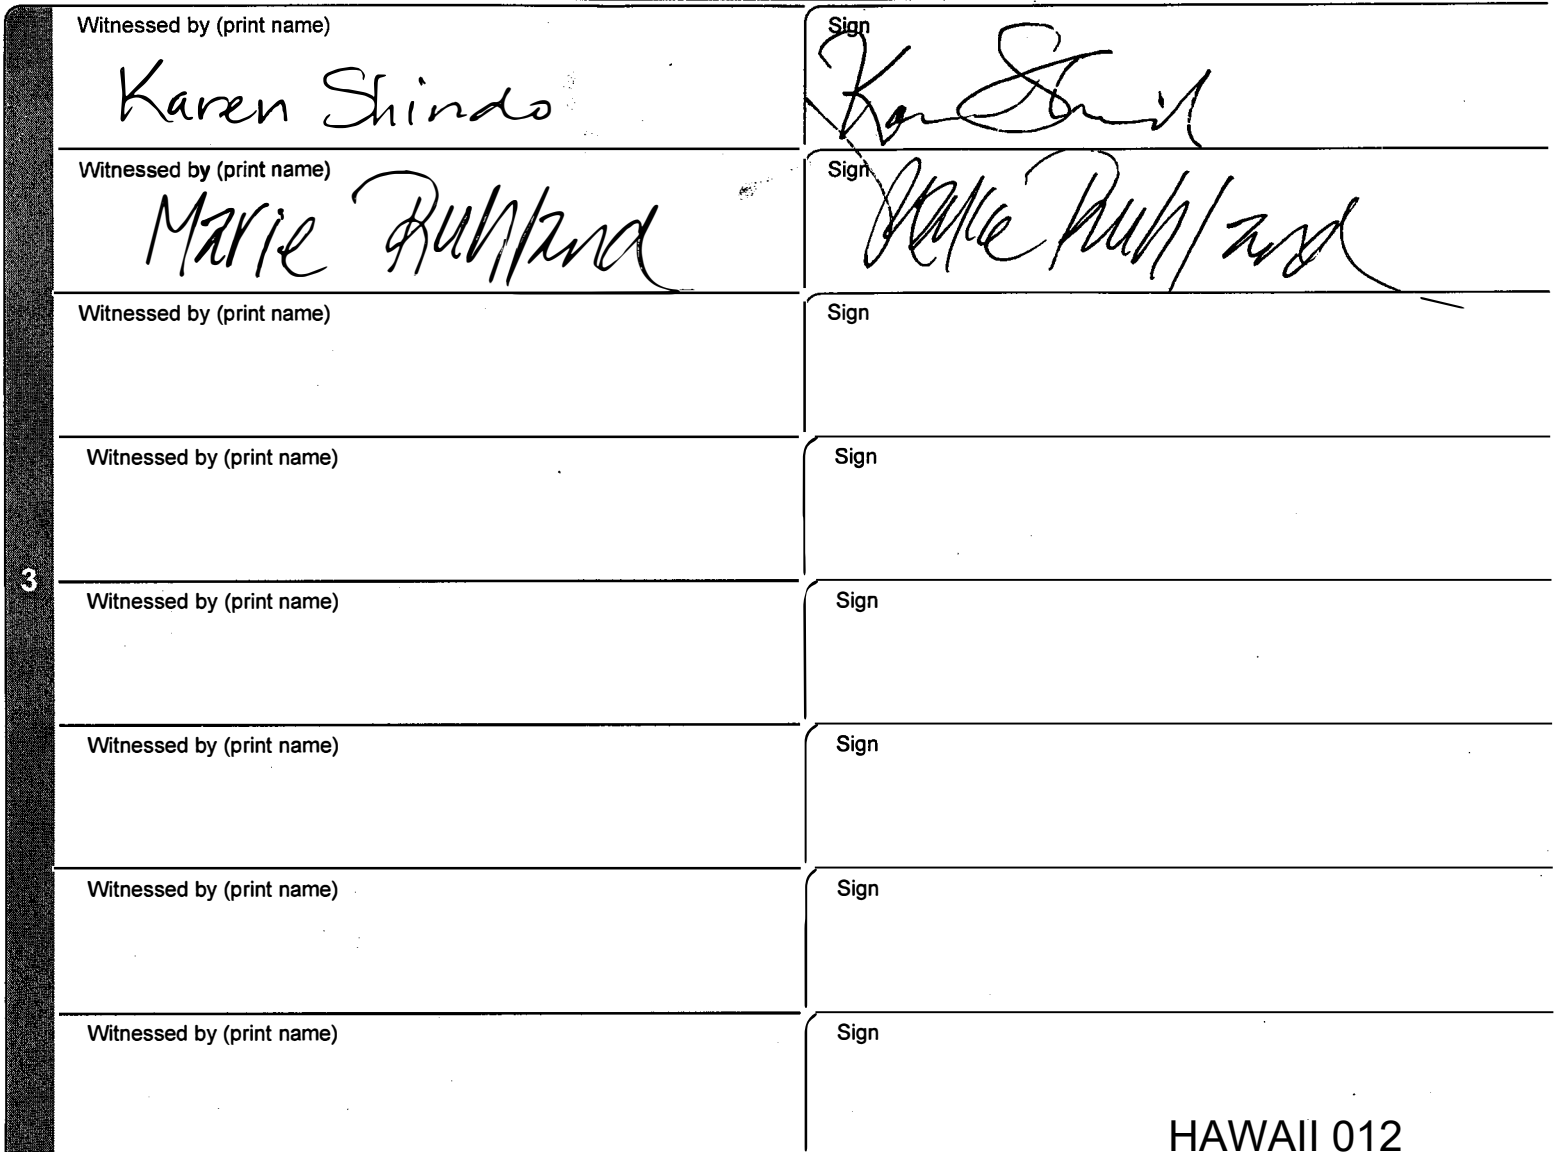 Witnessed by (print name) Sign
Karen Shindo
Witnessed by (print name) Sign
Marie Ruhland Marie Ruhland
Witnessed by (print name) Sign
Witnessed by (print name) Sign
3
Witnessed by (print name) Sign
Witnessed by (print name) Sign
Witnessed by (print name) Sign
Witnessed by (print name) Sign
HAWAII 012